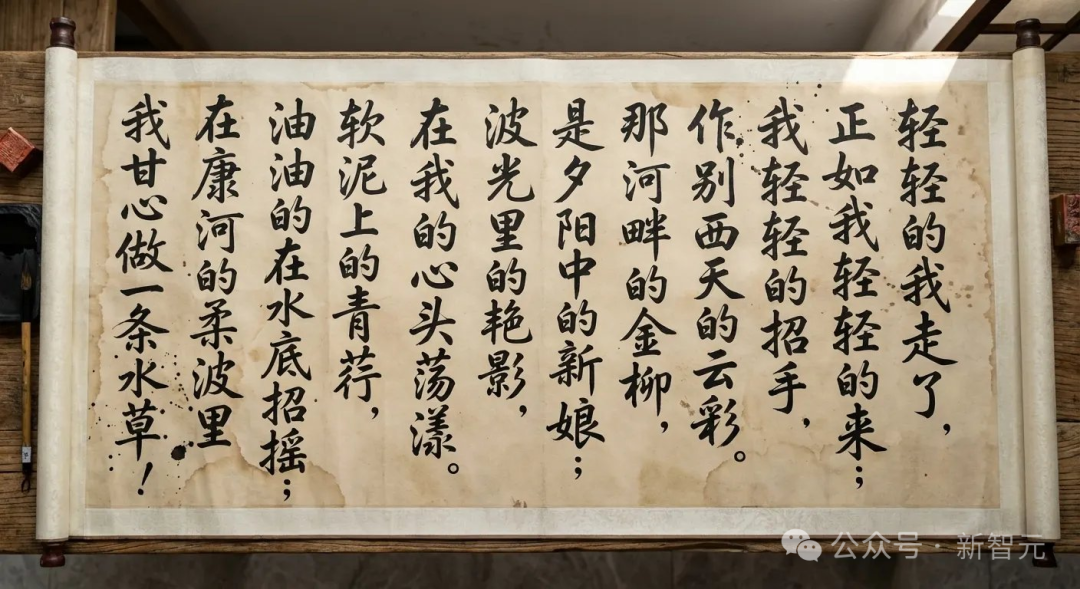 轻轻的我走了，
正如我轻轻的来；
我轻轻的招手，
作别西天的云彩。
那河畔的金柳，
是夕阳中的新娘；
波光里的艳影，
在我的心头荡漾。
软泥上的青荇，
油油的在水底招摇；
在康河的柔波里
我甘心做一条水草！
公众号·新智元